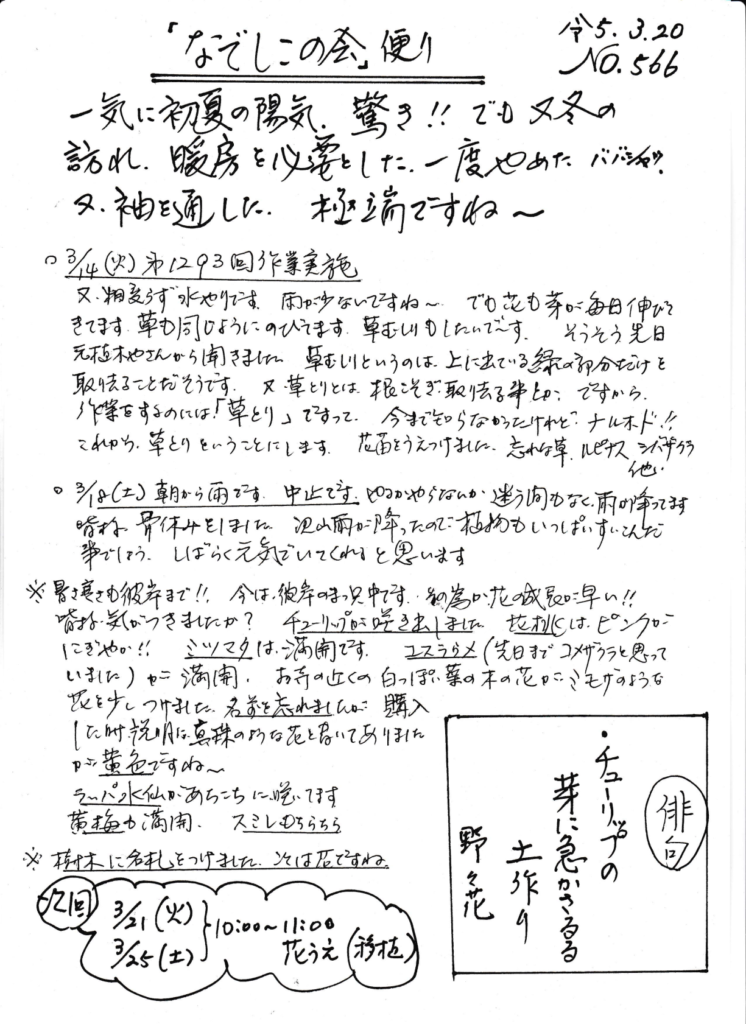 「なでしこの会」便り
令5.3.20
NO.566
一気に初夏の陽気、驚き!!でも又冬の
訪れ、暖房を必要とした、一度やめた ババシャツ、
又、袖を通した、極端ですね〜
○ 3/14(火)第1293回作業実施
又、相変らず水やりです、雨が少ないですね〜、でも花も芽が毎日伸びて
きてます、草も同じようにのびてます、草むしりもしたいです、そうそう先日
元植木やさんから聞きました、草むしりというのは、上に出ている緑の部分だけを
取り去ることだそうです、又草とりとは、根こそぎ取り去る事とか、ですから、
作業をするのには「草とり」ですって、今まで知らなかったけれど、ナルホド!!
これから、草とりということにします、花苗をうえつけました、忘れな草、ルピナス、シバザクラ
他、
○ 3/18(土)朝から雨です、中止です、やるかやらないか迷う間もなく、雨が降ってます
皆様、骨休みをしました、沢山雨が降ったので植物もいっぱいすいこんだ
事でしょう、しばらく元気でいてくれると思います
※ 暑さ寒さも彼岸まで!!今は、彼岸のまっ只中です、その為か花の成長が早い!!
皆様、気がつきましたか?チューリップが咲き出しました、花桃は、ピンクが
にぎやか!!ミツマタは、満開です、ユスラウメ(先日までコメザクラと思って
いました)が満開、お寺の近くの白っぽい葉の木の花がミモザのような
花を少しつけました、名前を忘れましたが、購入
した時、説明は真珠のような花と書いてありました
が黄色ですね〜
ラッパ水仙があちこちに咲いてます
黄梅も満開、スミレもちらちら
※ 樹木に名札をつけました、ですね、
次回
3/21(火)
3/25(土)
10:00〜11:00
花うえ(移植)
俳句
・チューリップの
芽に急かさるる
土作り
野々花